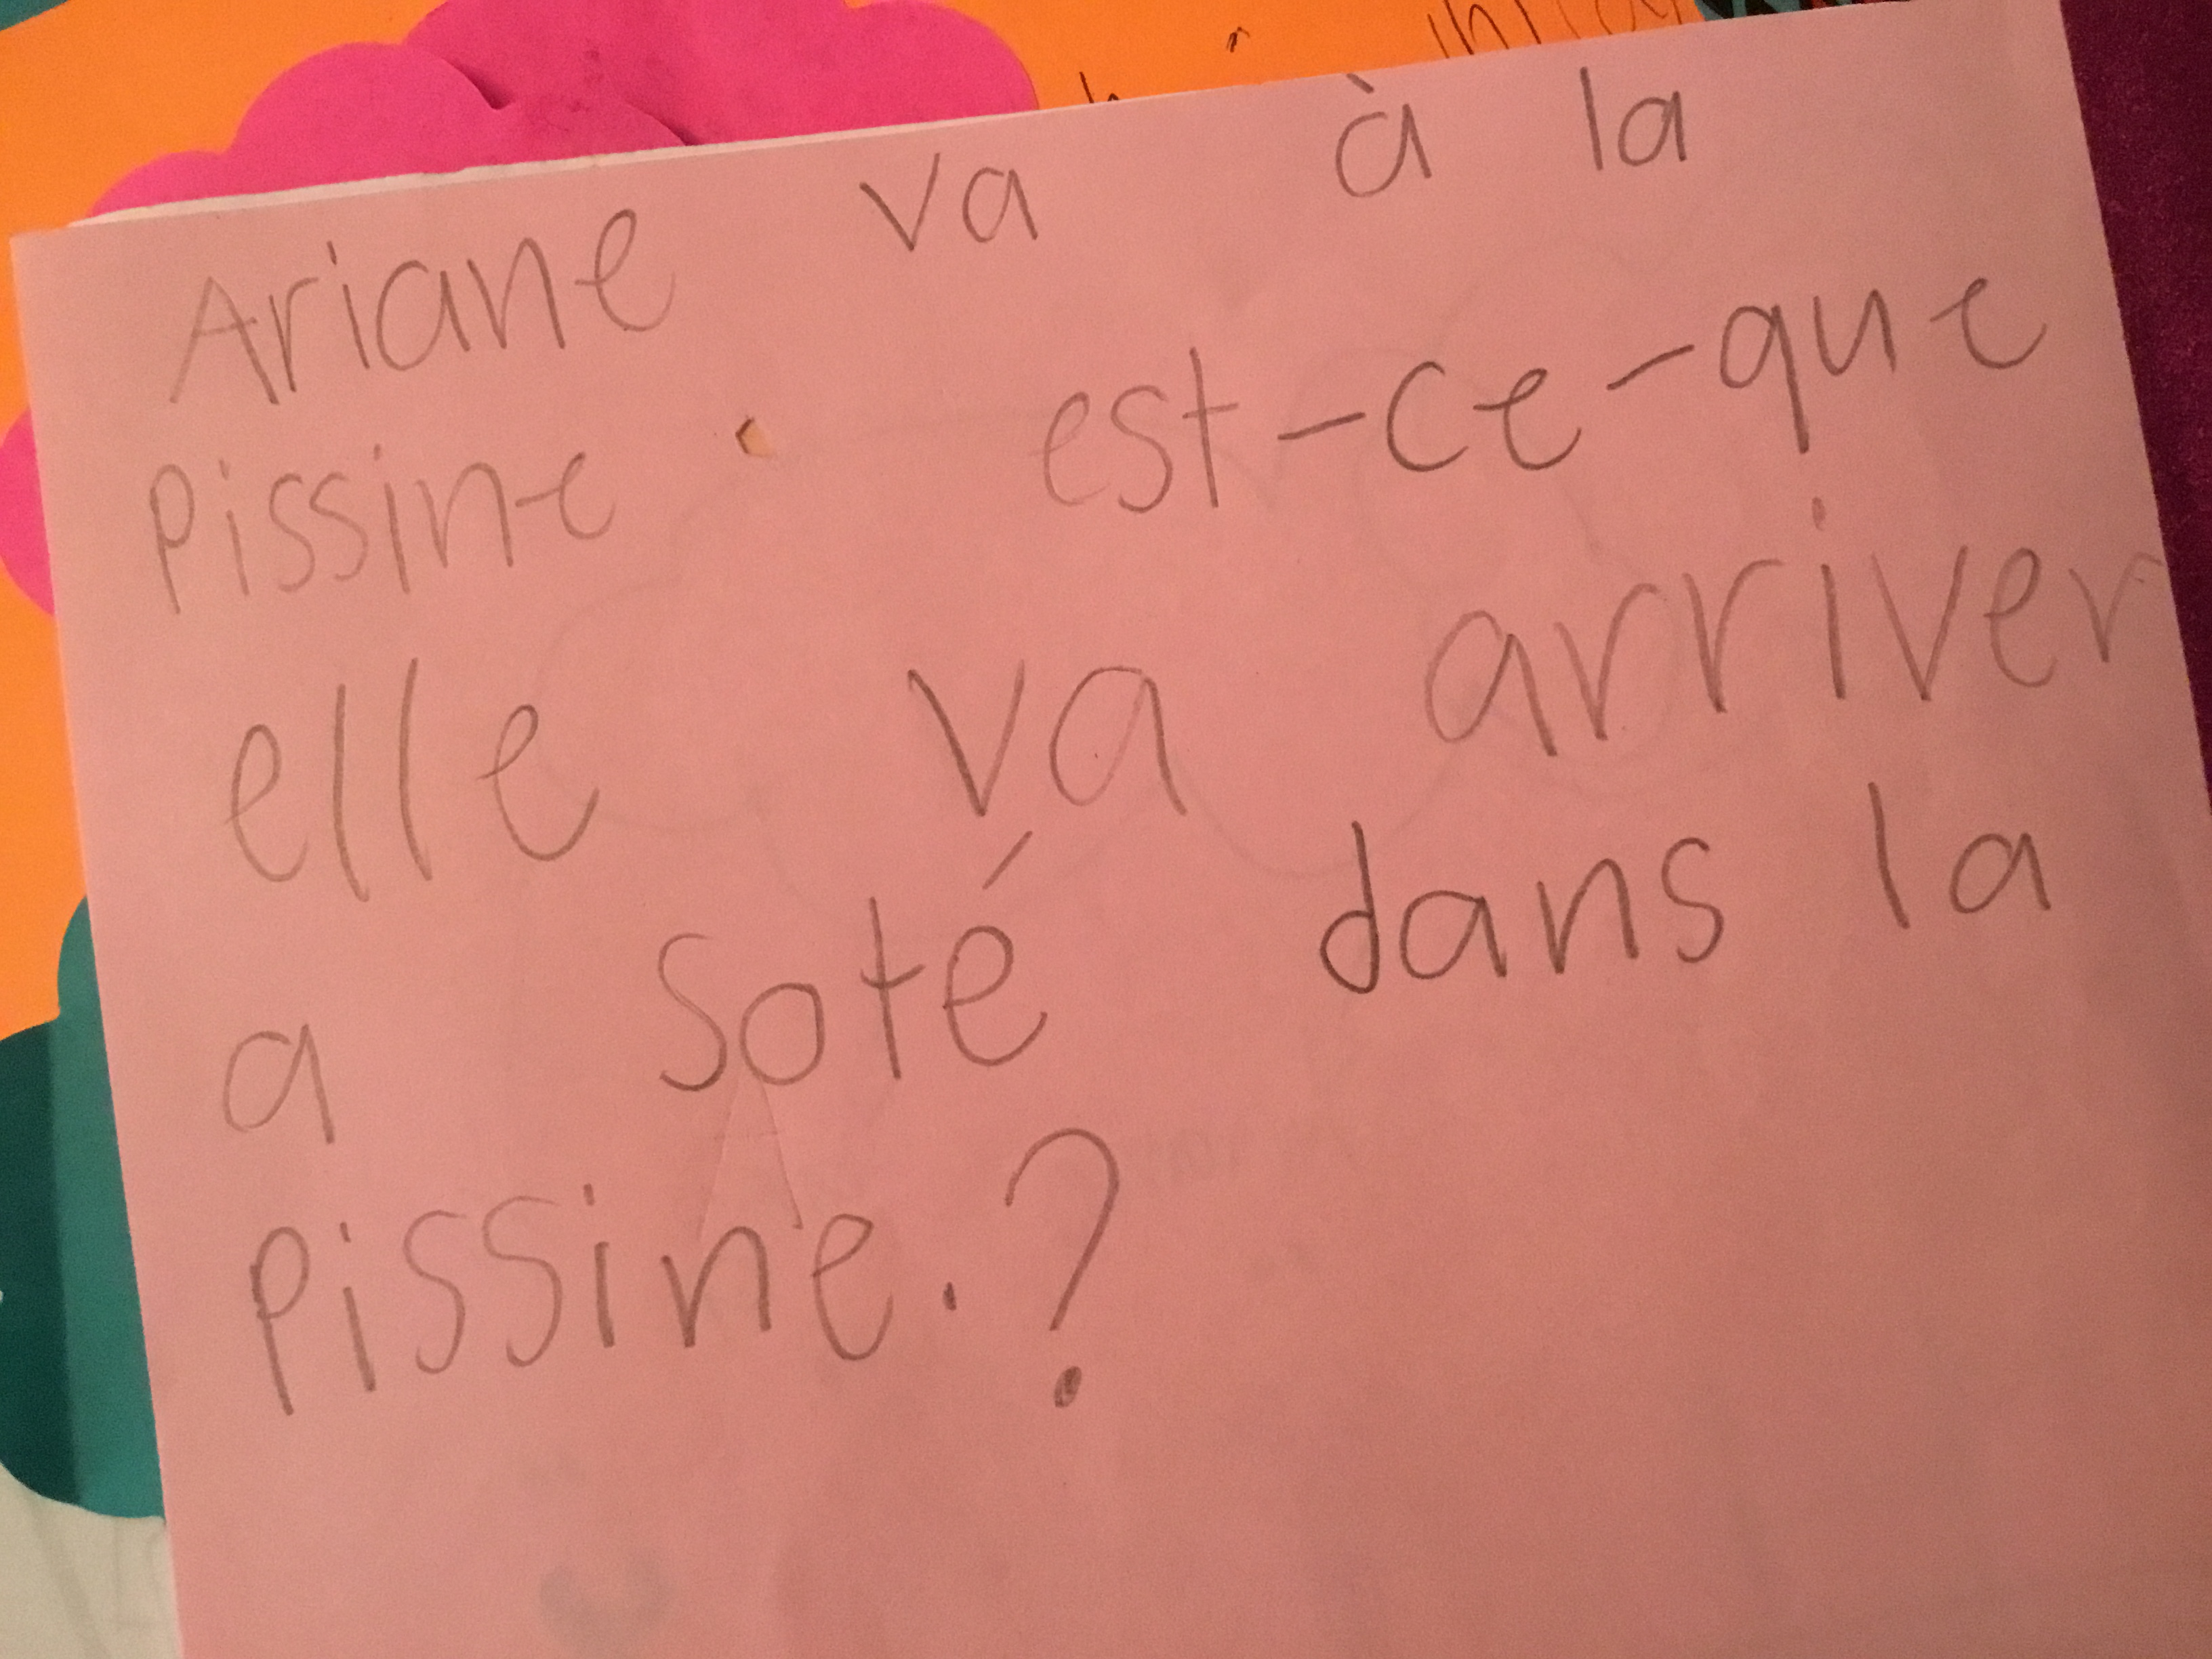 Ariane va à la
Pissine . est-ce-que
elle va arriver
a soté dans la
Pissine. ?